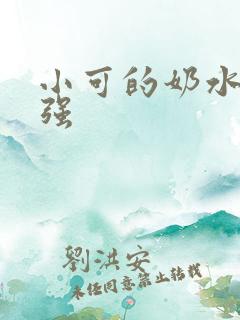 小可的奶水
强
劉洪安
未经同意禁止转载